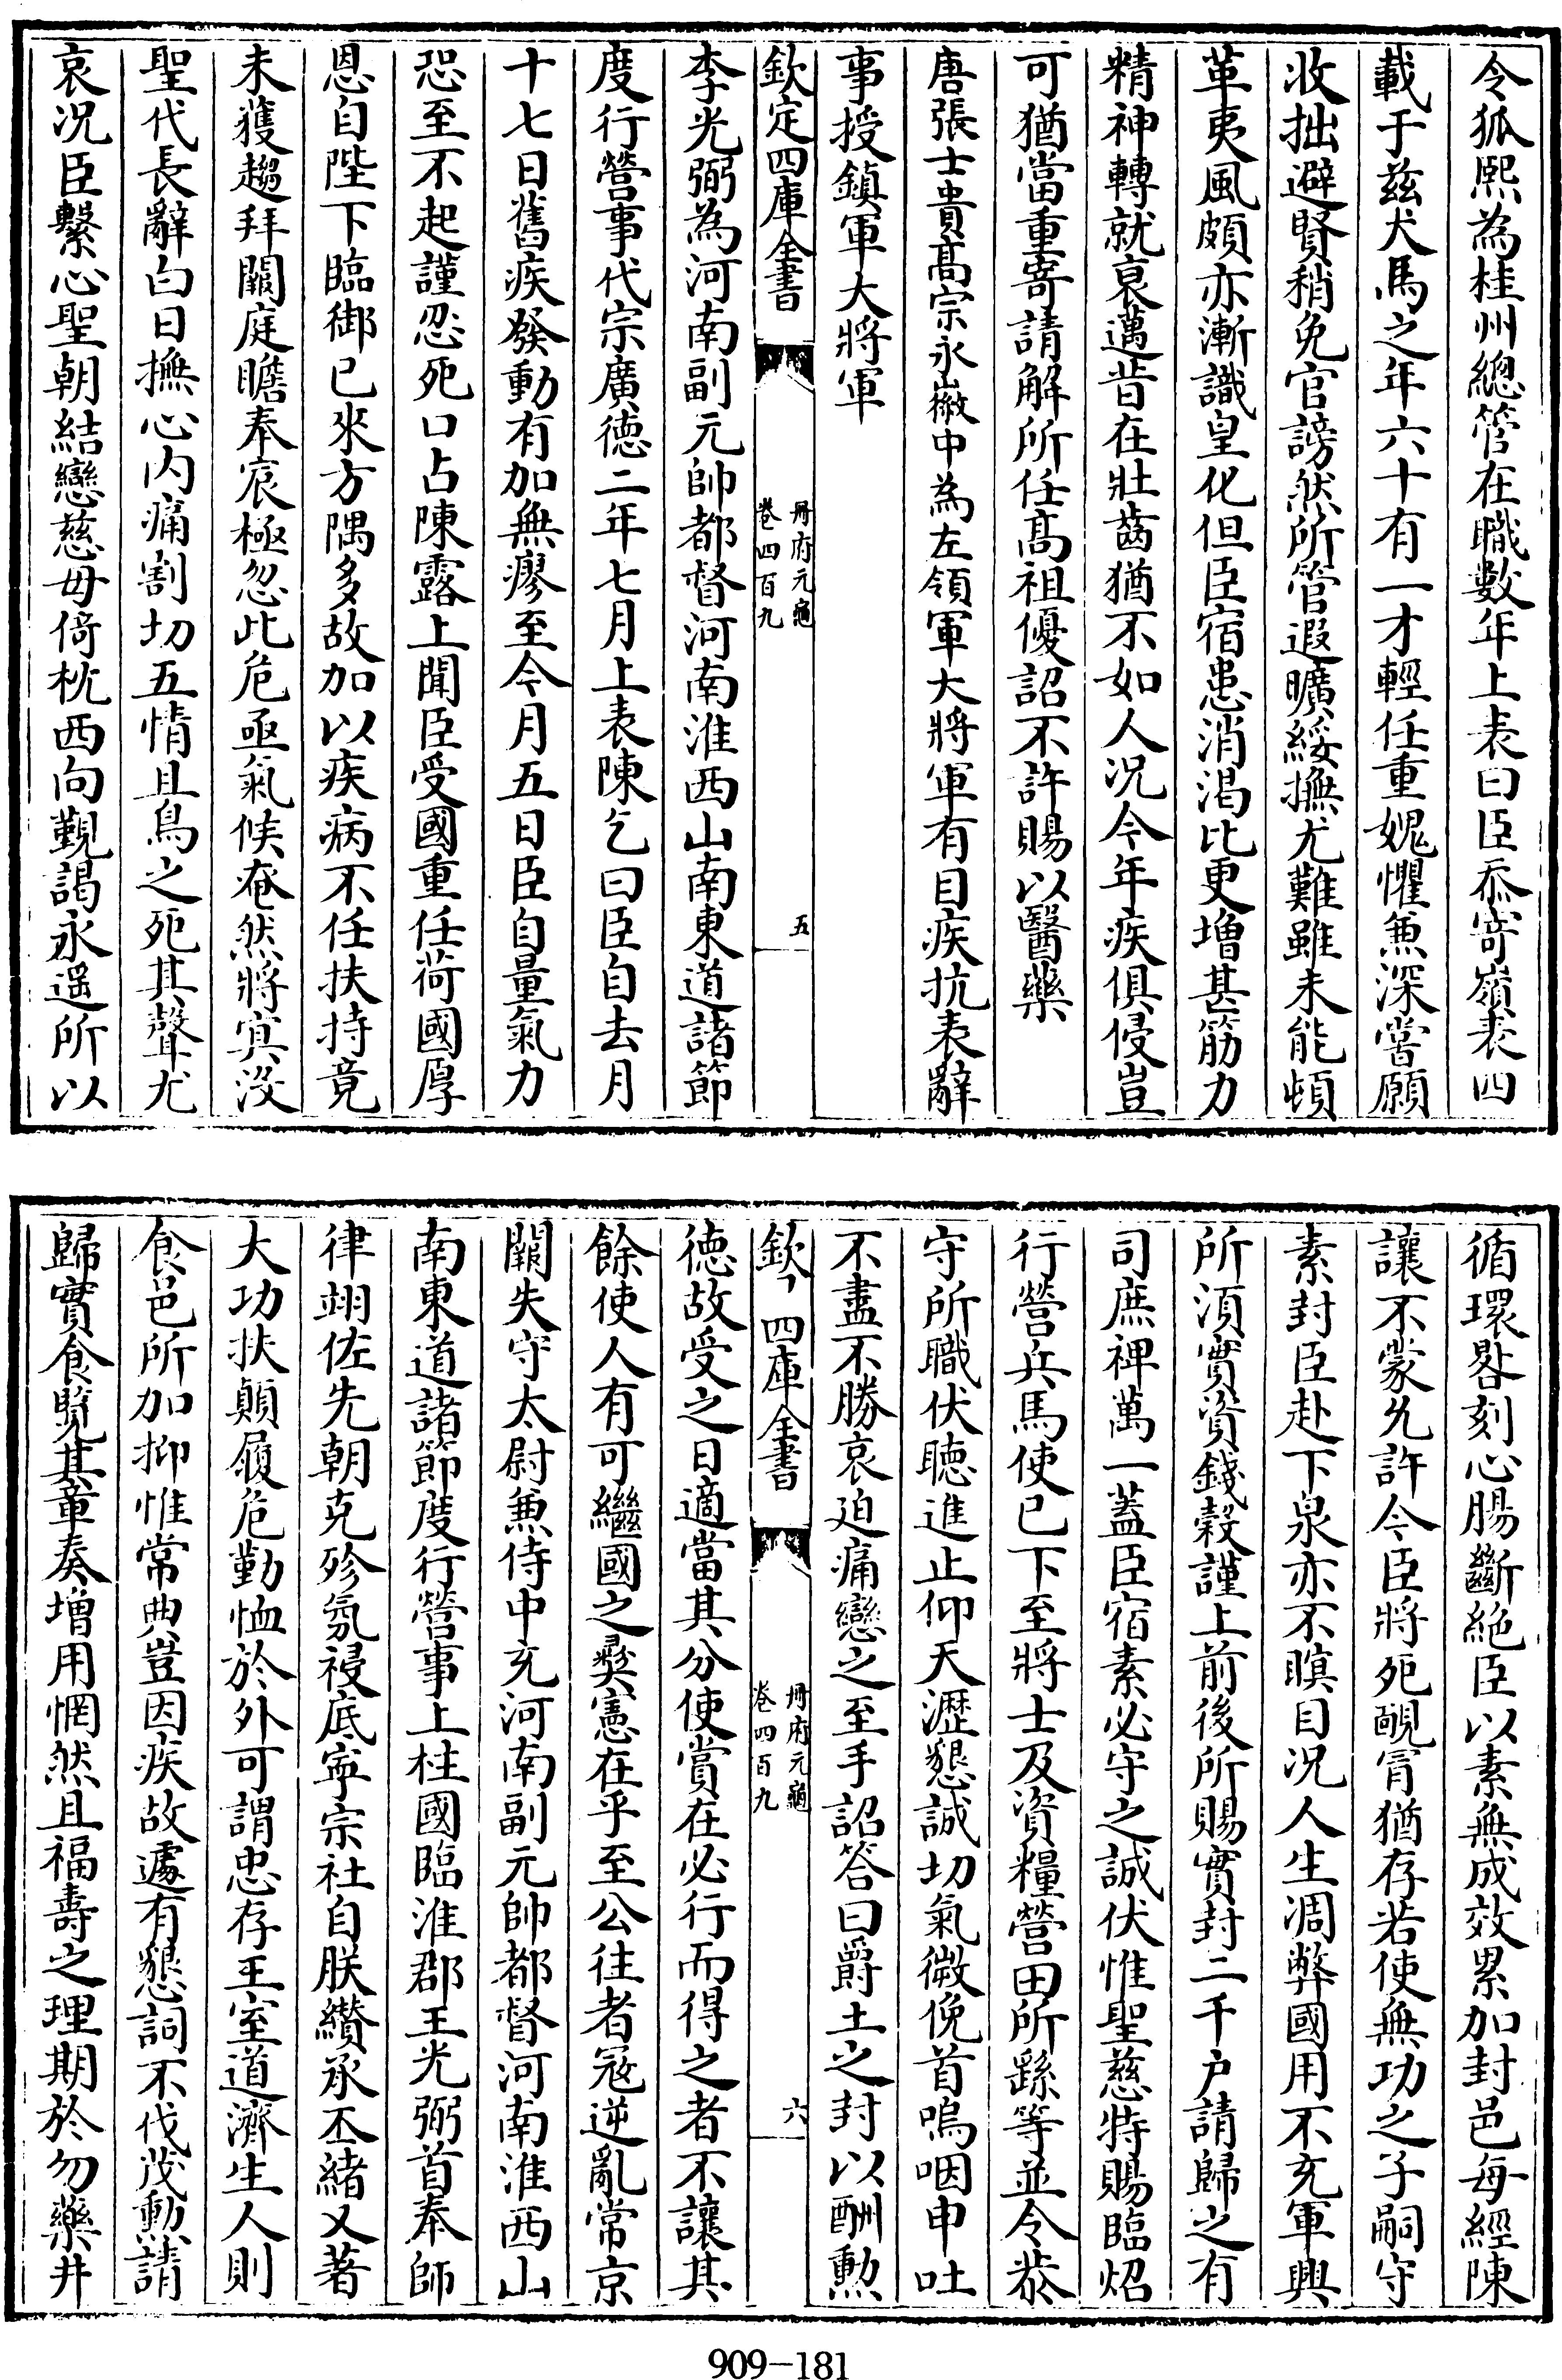 令狐熙為桂州總管在職數年上表曰臣忝寄嶺表四
載于兹犬馬之年六十有一才輕任重媿懼兼深嘗願
收拙避賢稍免官謗然所管遐曠綏撫尤難雖未能頓
革夷風頗亦漸識皇化但臣宿患消渴比更増甚筋力
精神轉就衰邁昔在壯齒猶不如人况今年疾俱侵豈
可猶當重寄請解所任髙祖優詔不許賜以醫藥
唐張士貴髙宗永徽中為左領軍大將軍有目疾抗表辭
事授鎮軍大將軍
欽定四庫全書
冊府元龜
卷四百九
五
李光弼為河南副元帥都督河南淮西山南東道諸節
度行營事代宗廣徳二年七月上表陳乞曰臣自去月
十七日舊疾發動有加無瘳至今月五日臣自量氣力
恐至不起謹忍死口占陳露上聞臣受國重任荷國厚
恩自陛下臨御已來方隅多故加以疾病不任扶持竟
未獲趨拜闕庭瞻奉宸極忽此危亟氣候奄然將寘没
聖代長辭白日撫心内痛割切五情且鳥之死其聲尤
哀况臣繫心聖朝結戀慈母倚枕西向覲謁永遥所以
循環晷刻心腸斷絶臣以素無成效累加封邑每經陳
讓不蒙允許今臣將死覼冐猶存若使無功之子嗣守
素封臣赴下泉亦不瞑目况人生凋弊國用不充軍興
所湏實資錢穀謹上前後所賜實封二千户請歸之有
司庶裨萬一蓋臣宿素必守之誠伏惟聖慈特賜臨炤
行營兵馬使已下至將士及資糧營田所繇等並令恭
守所職伏聽進止仰天瀝懇誠切氣微俛首嗚咽申吐
不盡不勝哀迫痛戀之至手詔答曰爵土之封以酬勲
欽 四庫全書
冊府元龜
卷四百九
六
徳故受之日適當其分使賞在必行而得之者不讓其
餘使人有可繼國之彞憲在乎至公往者冦逆亂常京
闕失守太尉兼侍中充河南副元帥都督河南淮西山
南東道諸節度行營事上柱國臨淮郡王光弼首奉師
律翊佐先朝克殄氛祲底寜宗社自朕纘承丕緒又著
大功扶顛履危勤恤於外可謂忠存王室道濟生人則
食邑所加抑惟常典豈因疾故遽有懇詞不伐茂勲請
歸實食覽其章奏増用惘然且福壽之理期於勿藥井
909-181